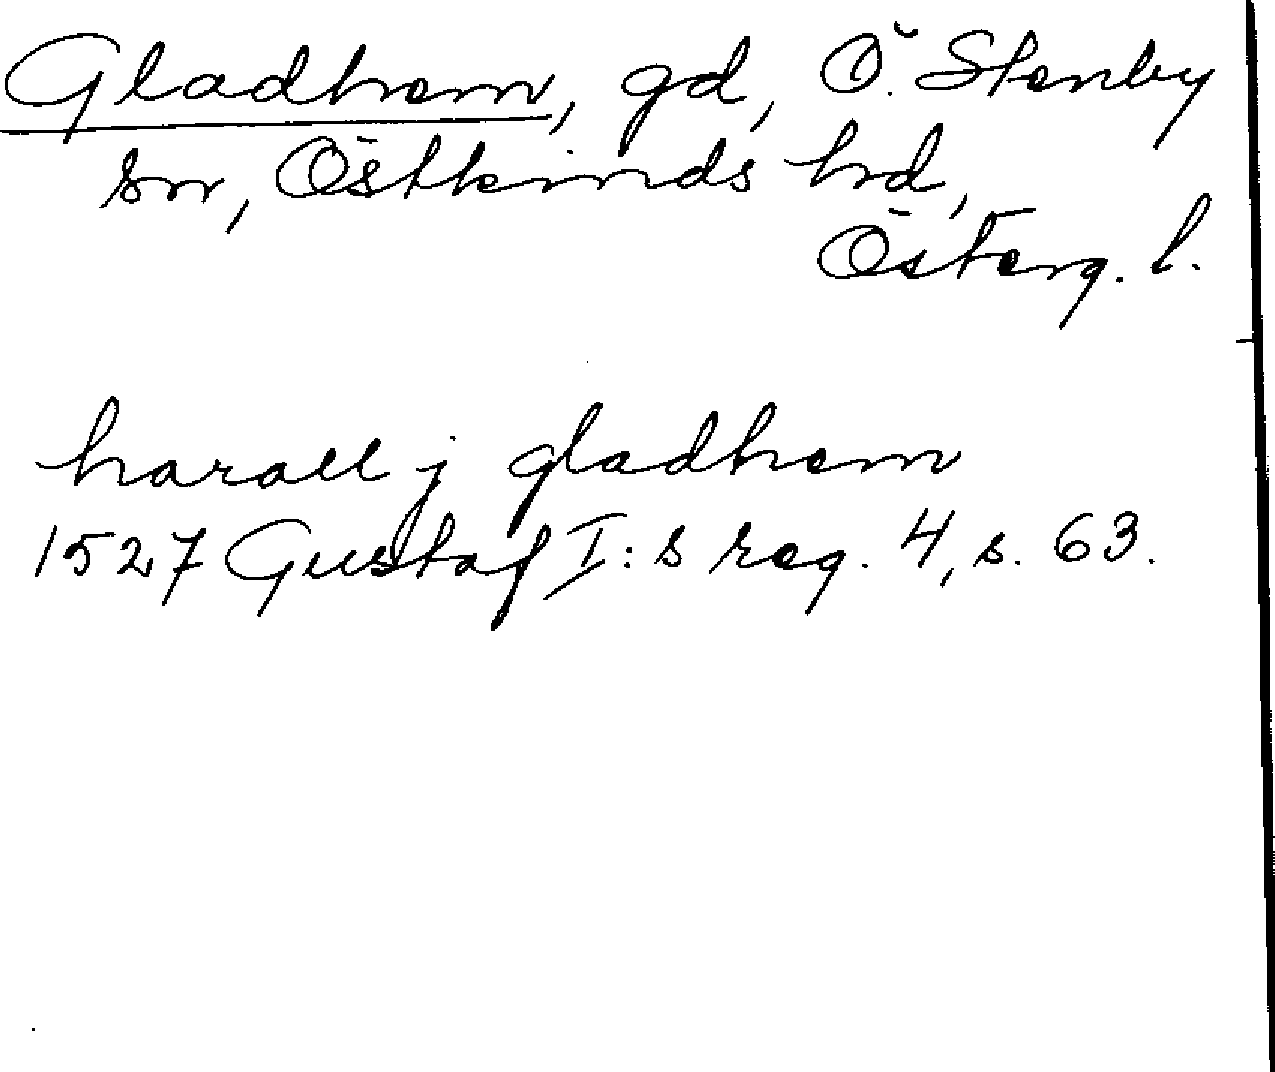 Gladhem, gd, Ö. Stenby
sn, Östkinds hd,
Österg. l.
harall j gladhem
1527 Gustaf I:s reg. 4, s. 63.